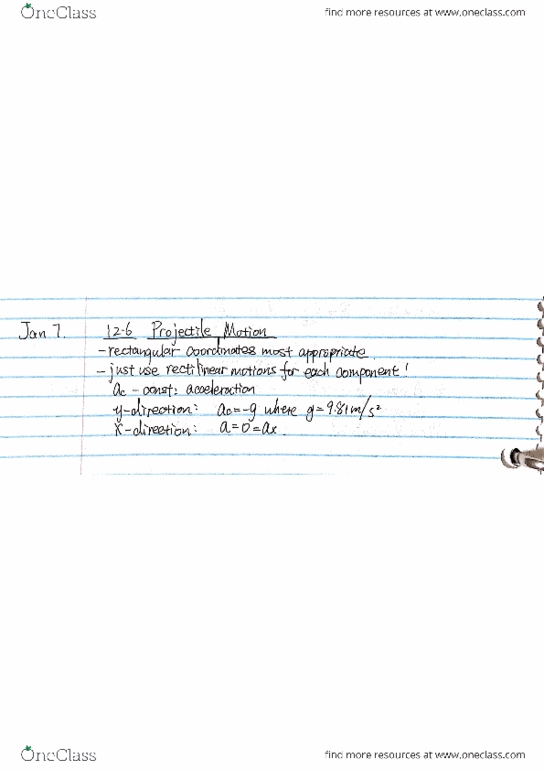 OneClass
find more resources at www.oneclass.com
Jan 7. 12-6 Projectile Motion
- rectangular coordinates most appropriate.
- just use rectilinear motions for each component!
ac - const: acceleration
y-direction: ac=-g where g=9.81m/s²
x-direction: a=0=ax.
OneClass
find more resources at www.oneclass.com